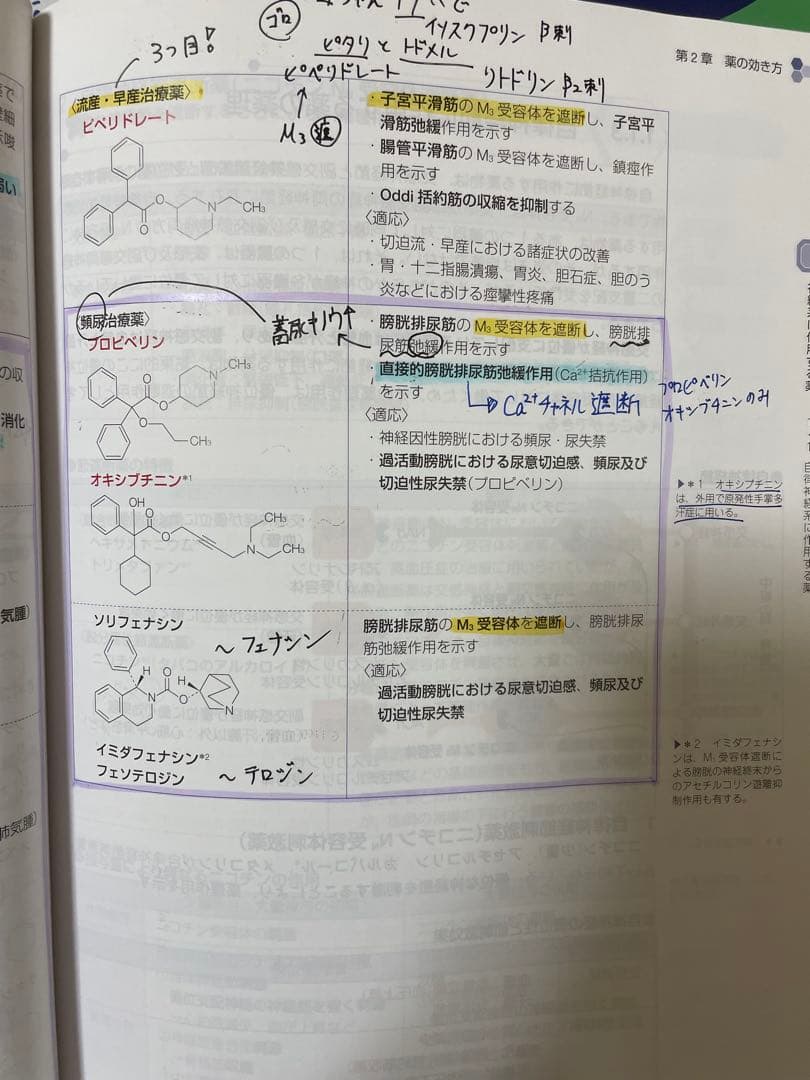 ゴロ
イソスクプリン β刺
3つ目!
ピタリ と トドメル
ピペリドレート リトドリン β2刺
M3 遮
第2章 薬の効き方
〈流産・早産治療薬〉
ピペリドレート
N
CH₃
O
O
・子宮平滑筋のM₃受容体を遮断し、子宮平
滑筋弛緩作用を示す
・腸管平滑筋のM₃受容体を遮断し、鎮痙作
用を示す
・Oddi括約筋の収縮を抑制する
〈適応〉
・切迫流・早産における諸症状の改善
・胃・十二指腸潰瘍、胃炎、胆石症、胆のう
炎などにおける痙攣性疼痛
〈頻尿治療薬〉
プロピベリン
蓄尿キノウ↑
CH₃
N
O
O
O
CH₃
オキシブチニン*1
OH
O
O
N
CH₃
CH₃
・膀胱排尿筋のM₃受容体を遮断し、膀胱排
尿筋弛緩作用を示す
・直接的膀胱排尿筋弛緩作用(Ca²⁺拮抗作用)
を示す
Ca²⁺チャネル遮断
プロピベリン
オキシブチニンのみ
〈適応〉
・神経因性膀胱における頻尿・尿失禁
・過活動膀胱における尿意切迫感、頻尿及び
切迫性尿失禁(プロピベリン)
▶*1 オキシブチニン
は、外用で原発性手掌多
汗症に用いる。
ソリフェナシン
〜フェナシン
H
O
H
N
O
N
イミダフェナシン*2
フェソテロジン 〜テロジン
膀胱排尿筋のM₃受容体を遮断し、膀胱排尿
筋弛緩作用を示す
〈適応〉
過活動膀胱における尿意切迫感、頻尿及び
切迫性尿失禁
▶*2 イミダフェナシ
ンは、M₁受容体遮断に
よる膀胱の神経終末から
のアセチルコリン遊離抑
制作用も有する。